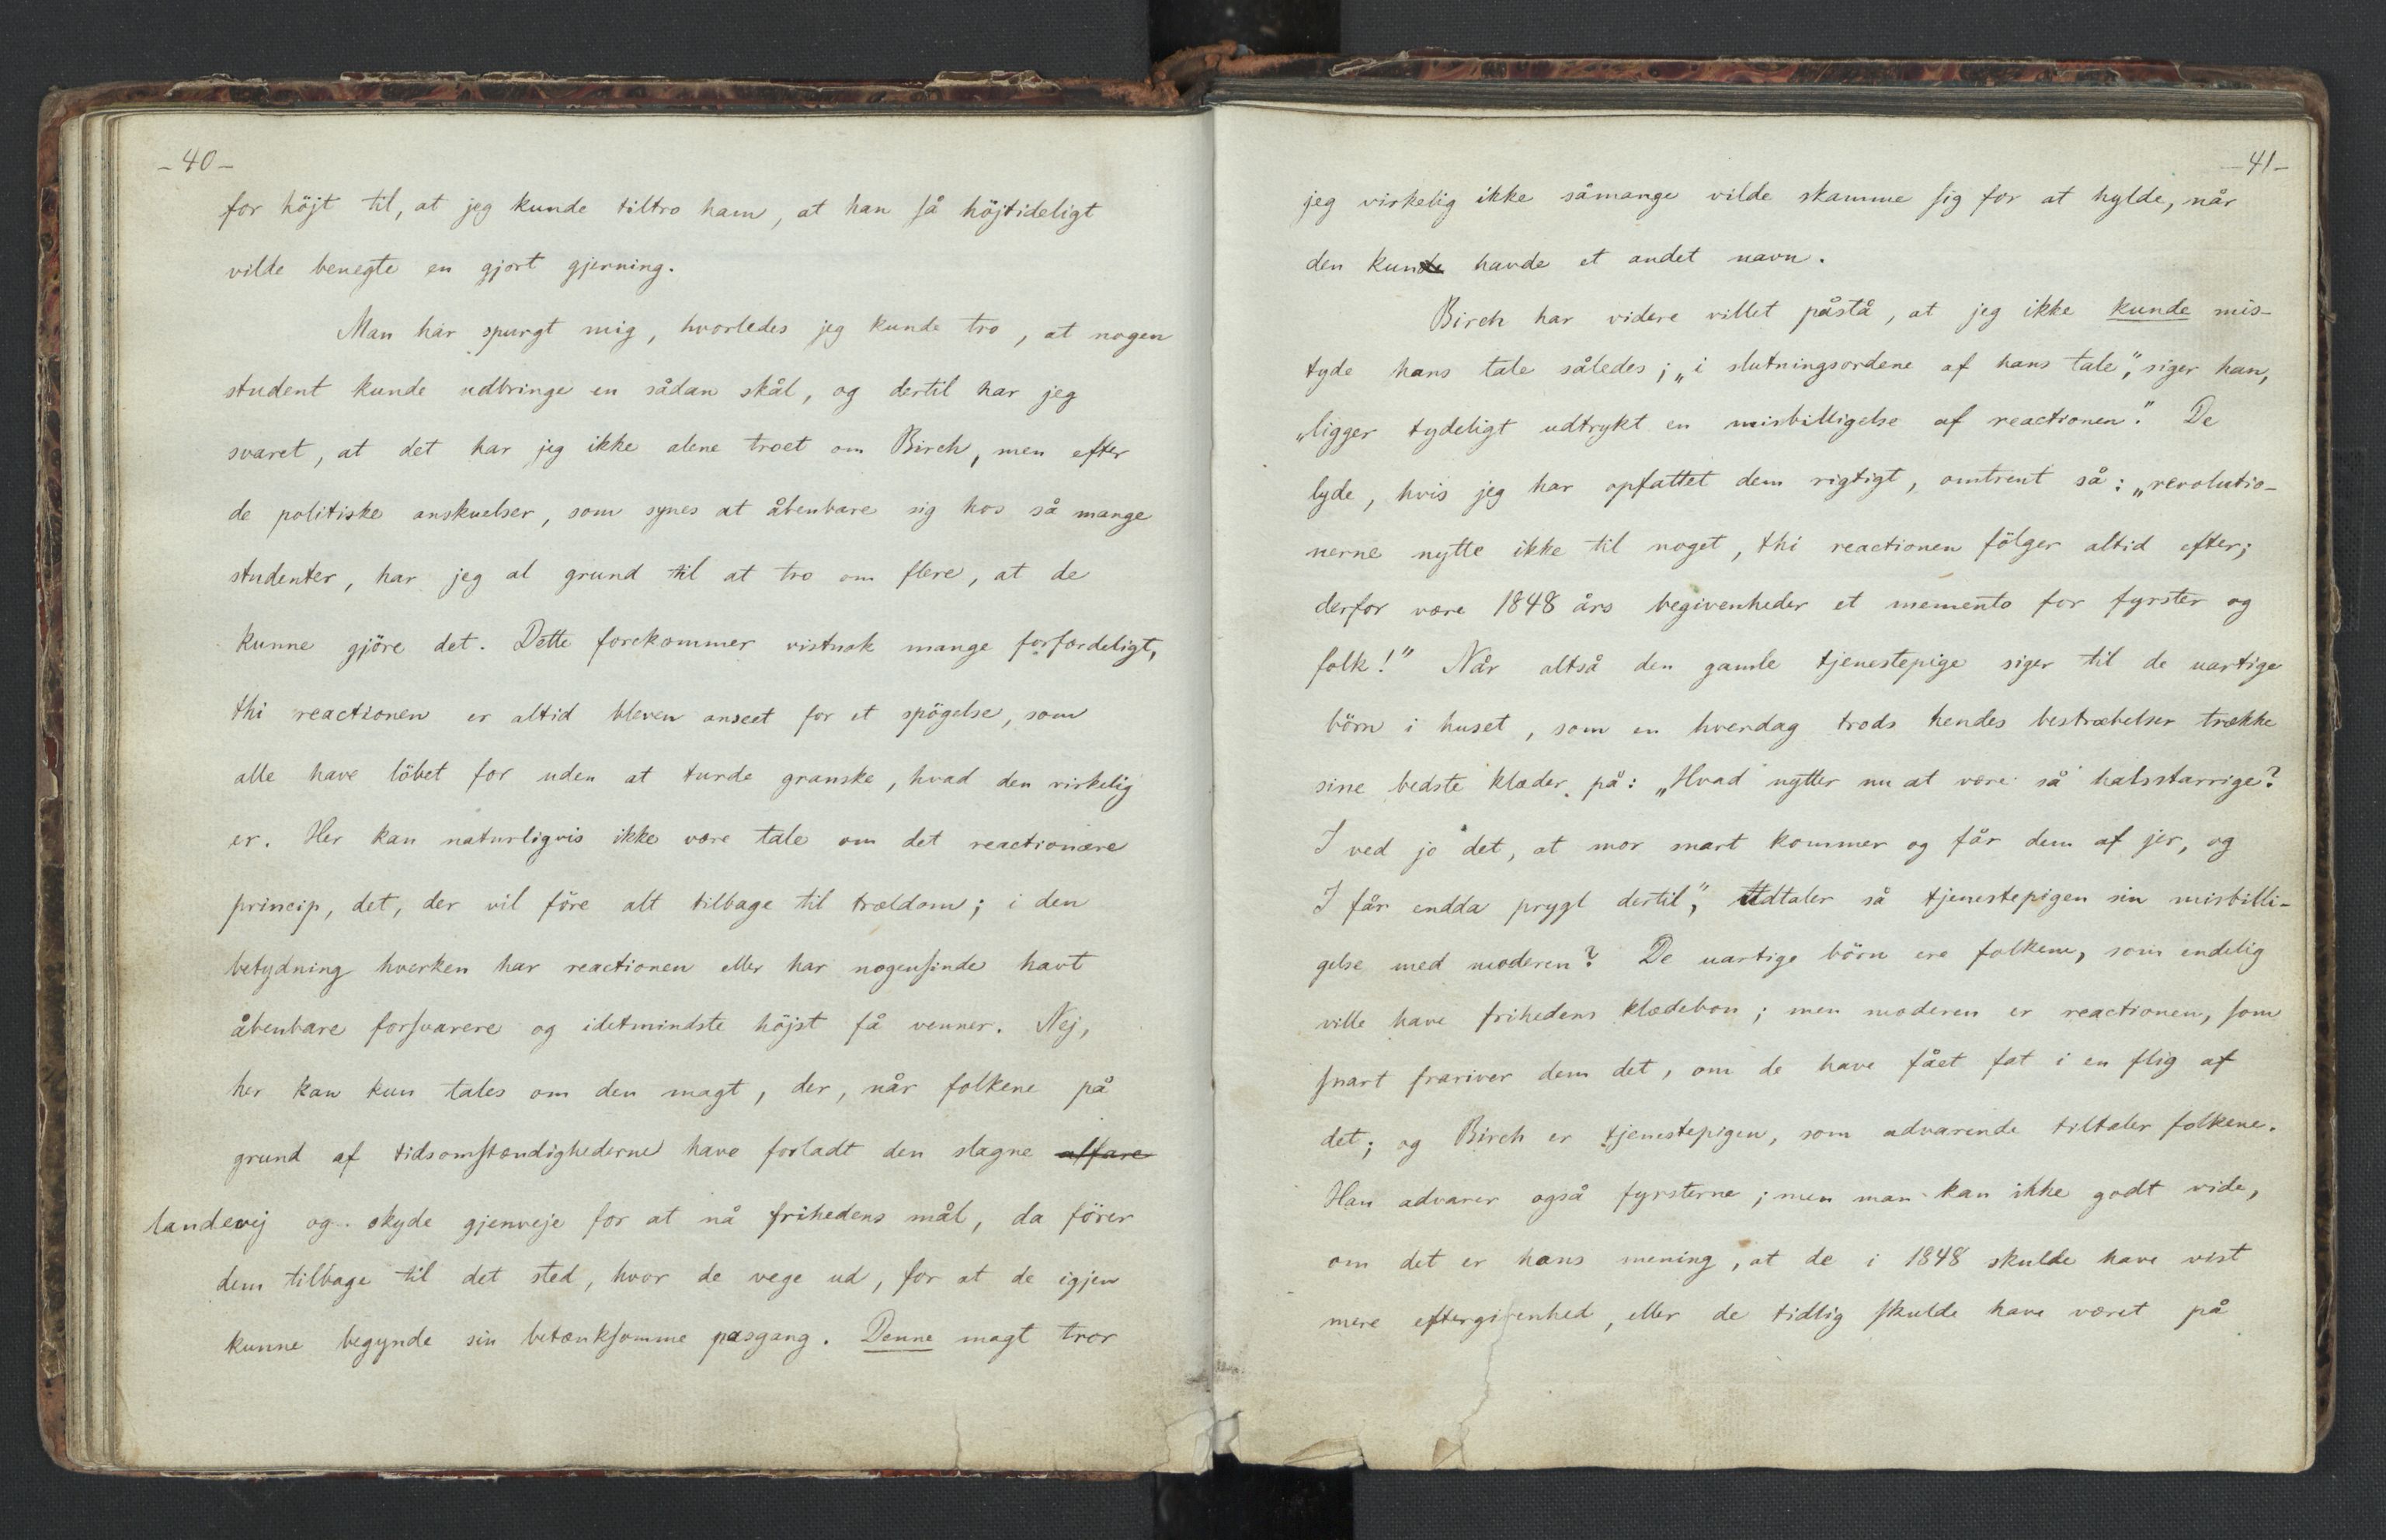 -40-
for höjt til, at jeg kunde tiltro ham, at han så höjtideligt
vilde benegte en gjort gjerning.
Man har spurgt mig, hvorledes jeg kunde tro, at nogen
student kunde udbringe en sådan skål, og dertil har jeg
svaret, at det har jeg ikke alene troet om Birch, men efter
de politiske anskuelser, som synes at åbenbare sig hos så mange
studenter, har jeg al grund til at tro om flere, at de
kunne gjöre det. Dette forekommer vistnok mange forfærdeligt,
thi reactionen er altid bleven anseet for et spögelse, som
alle have löbet for uden at turde granske, hvad den virkelig
er. Her kan naturligvis ikke være tale om det reactionære
princip, det, der vil före alt tilbage til trældom; i den
betydning hverken har reactionen eller har nogensinde havt
åbenbare forsvarere og idetmindste höjst få venner. Nej,
her kan kun tales om den magt, der, når folkene på
grund af tidsomstændighederne have forladt den slagne alfare
landevej og skyde gjenveje for at nå frihedens mål, da förer
dem tilbage til det sted, hvor de vege ud, for at de igjen
kunne begynde sin betænksomme pasgang. Denne magt tror
-41-
jeg virkelig ikke såmange vilde skamme sig for at hylde, når
den kunde havde et andet navn.
Birch har videre villet påstå, at jeg ikke kunde mis-
tyde hans tale således; „i slutningsordene af hans tale", siger han,
„ligger tydeligt udtrykt en misbilligelse af reactionen." De
lyde, hvis jeg har opfattet dem rigtigt, omtrent så: „revolutio-
nerne nytte ikke til noget, thi reactionen fölger altid efter;
derfor være 1848 års begivenheder et memento for fyrster og
folk!" Når altså den gamle tjenestepige siger til de uartige
börn i huset, som en hverdag trods hendes bestræbelser trække
sine bedste klæder på: „Hvad nytter nu at være så halsstarrige?
I ved jo det, at mor snart kommer og får dem af jer, og
I får endda prygl dertil", Udtaler så tjenestepigen sin misbilli-
gelse med moderen? De uartige börn ere folkene, som endelig
ville have frihedens klædebon; men moderen er reactionen, som
snart frariver dem det, om de have fået fat i en flig af
det; og Birch er tjenestepigen, som advarende tiltaler folkene.
Han advarer også fyrsterne; men man kan ikke godt vide,
om det er hans mening, at de i 1848 skulde have vist
mere eftergivenhed, eller de tidlig skulde have været på